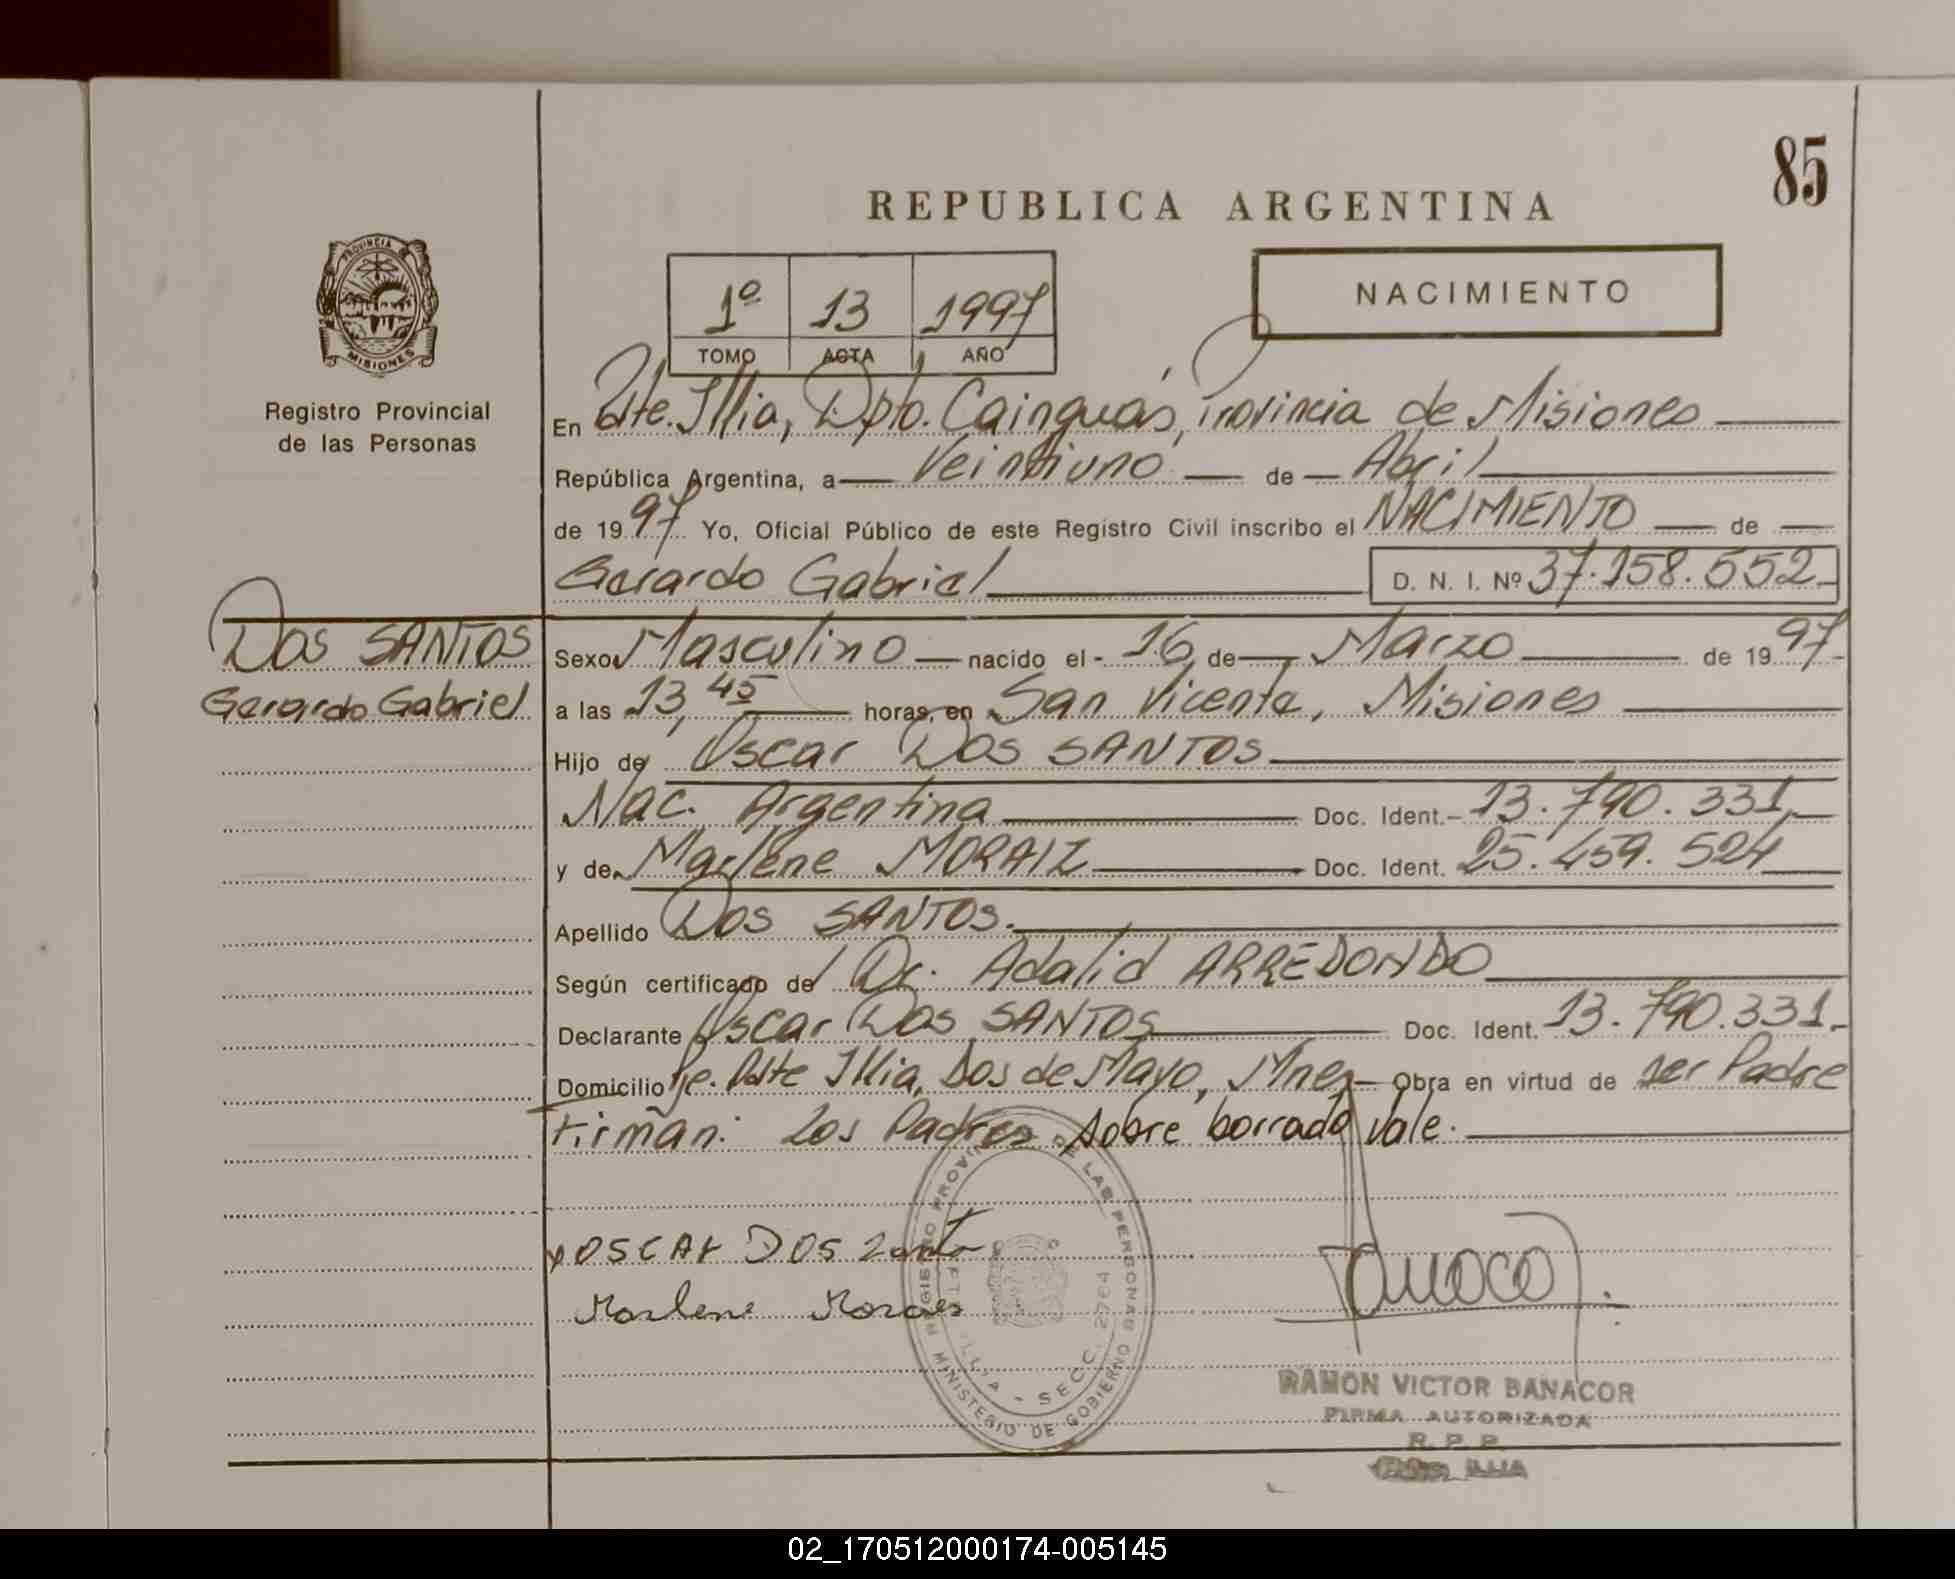 85
REPUBLICA ARGENTINA
PROVINCIA
MISIONES
Registro Provincial
de las Personas
1º 13 1997
TOMO ACTA AÑO
NACIMIENTO
En Pdte. Illia, Dpto. Cainguás, Provincia de Misiones
República Argentina, a Veintiuno de Abril
de 1997 Yo, Oficial Público de este Registro Civil inscribo el NACIMIENTO de
Gerardo Gabriel D. N. I. Nº 37.158.552
DOS SANTOS
Gerardo Gabriel
Sexo Masculino nacido el 16 de Marzo de 1997
a las 13,45 horas, en San Vicente, Misiones
Hijo de Oscar DOS SANTOS
Nac. Argentina Doc. Ident. 13.790.331
y de Marlene MORAIZ Doc. Ident. 25.459.524
Apellido DOS SANTOS.
Según certificado de Dr. Adalid ARREDONDO
Declarante Oscar DOS SANTOS Doc. Ident. 13.790.331.
Domicilio Pje. Pdte Illia, Dos de Mayo, Mnes Obra en virtud de ser Padre
Firman: Los Padres. Sobre borrado Vale.
OSCAR DOS Santo
Marlene Moraes
REGISTRO PROVIN DE LAS PERSONAS
MINISTERIO DE GOBIERNO
PTE ILLIA - SECC. 2764
RAMON VICTOR BANACOR
FIRMA AUTORIZADA
R. P. P.
ILLIA
02_170512000174-005145